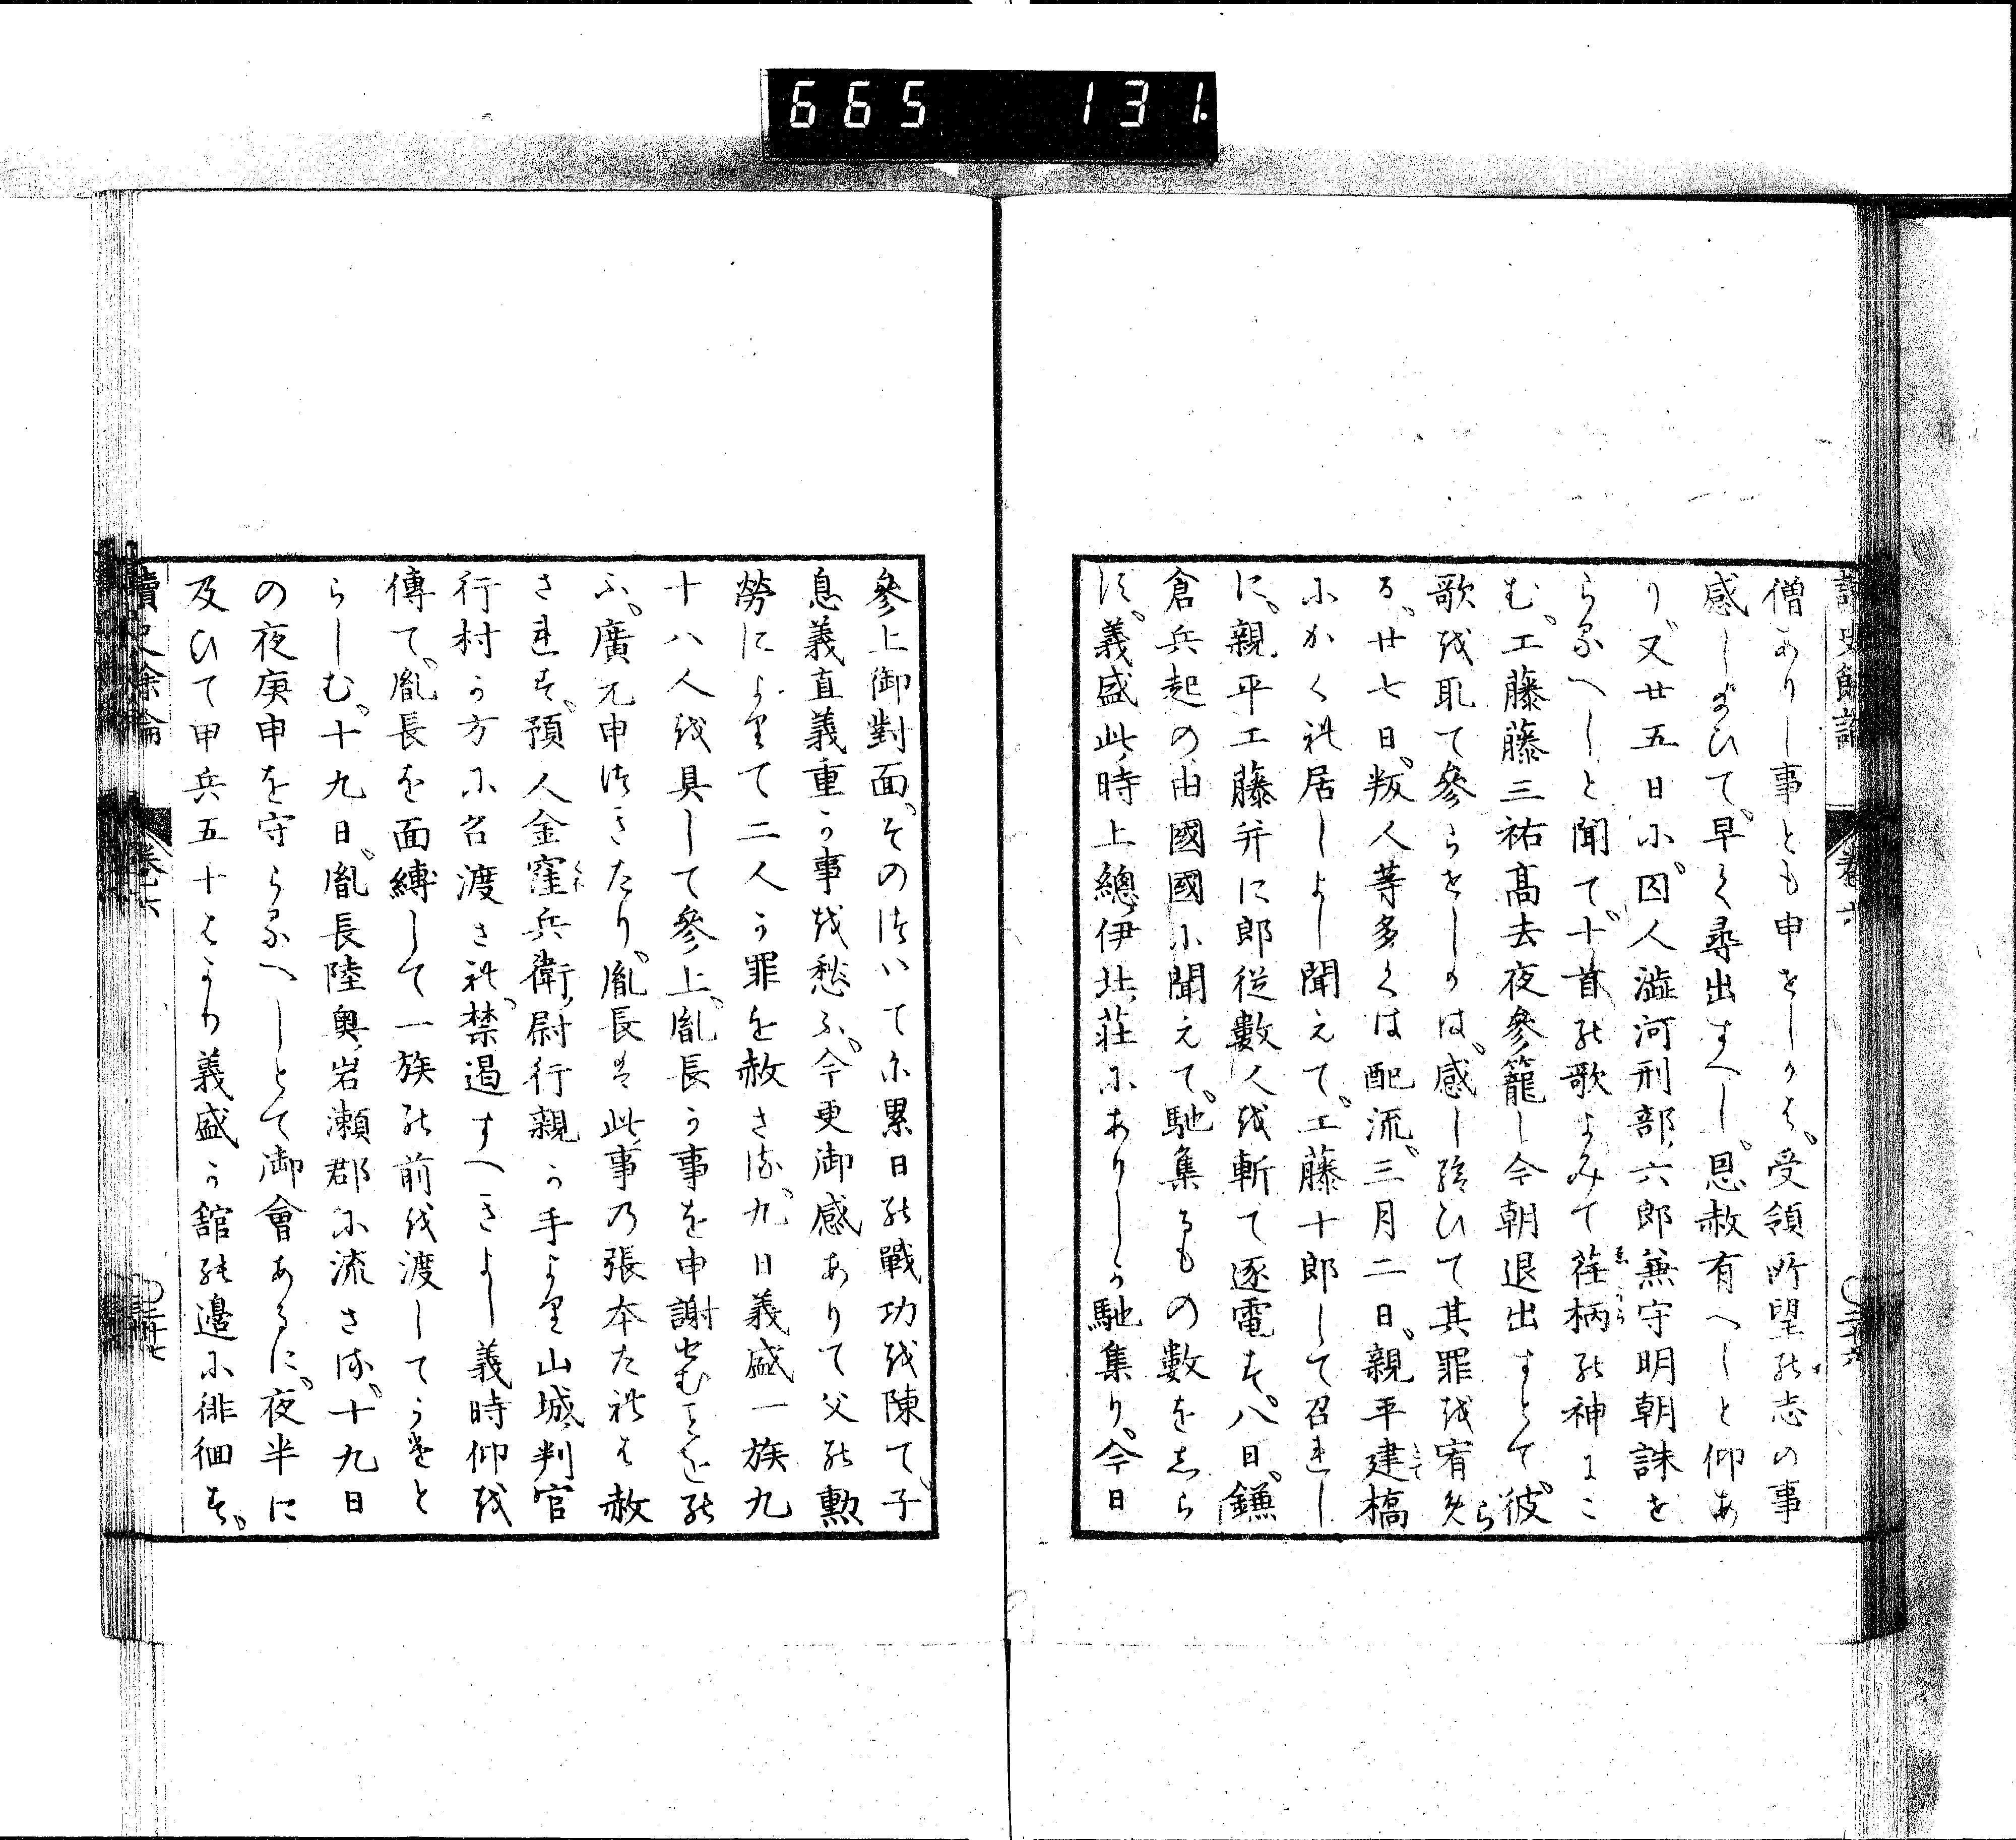 665 131
僧ありし事とも申せしかは受領所望の志の事
感し給ひて早く尋出すへし恩赦有へしと仰あ
り又廿五日に囚人澁河刑部六郎兼守明朝誅せ
らるへしと聞て十首の歌よみて荏柄の神にこ
む工藤藤三祐髙去夜參籠し今朝退出すとて彼
歌を取て參らせしかは感し給ひて其罪を宥めら
る廿七日叛人等多くは配流三月二日親平建橋
にかくれ居しよし聞えて工藤十郎して召れし
に親平工藤并に郎從數人を斬て逐電す八日鎌
倉兵起の由國國に聞えて馳集るもの數をしら
す義盛此時上總伊北莊にありしか馳集り今日
參上御對面そのつゐてに累日の戰功を陳て子
息義直義重か事を愁ふ今更御感ありて父の勲
勞によりて二人か罪を赦さる九日義盛一族九
十八人を具して參上胤長か事を申謝せむとその
ふ廣元申つきたり胤長は此事の張本たれは赦
されす預人金窪兵衛尉行親か手より山城判官
行村か方に召渡され禁遏すへきよし義時仰を
傳て胤長を面縛して一族の前を渡してうけと
らしむ十九日胤長陸奥岩瀬郡に流さる十九日
の夜庚申を守らるへしとて御會あるに夜半に
及ひて甲兵五十はかり義盛か舘の邊に徘徊す
讀史餘論 卷六